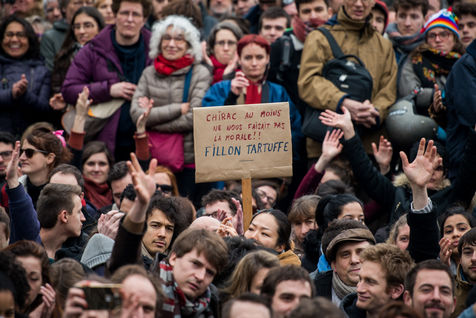 CHIRAC, AU MOINS
NE NOUS FAISAIT PAS
LA MORALE!!
FILLON TARTUFFE